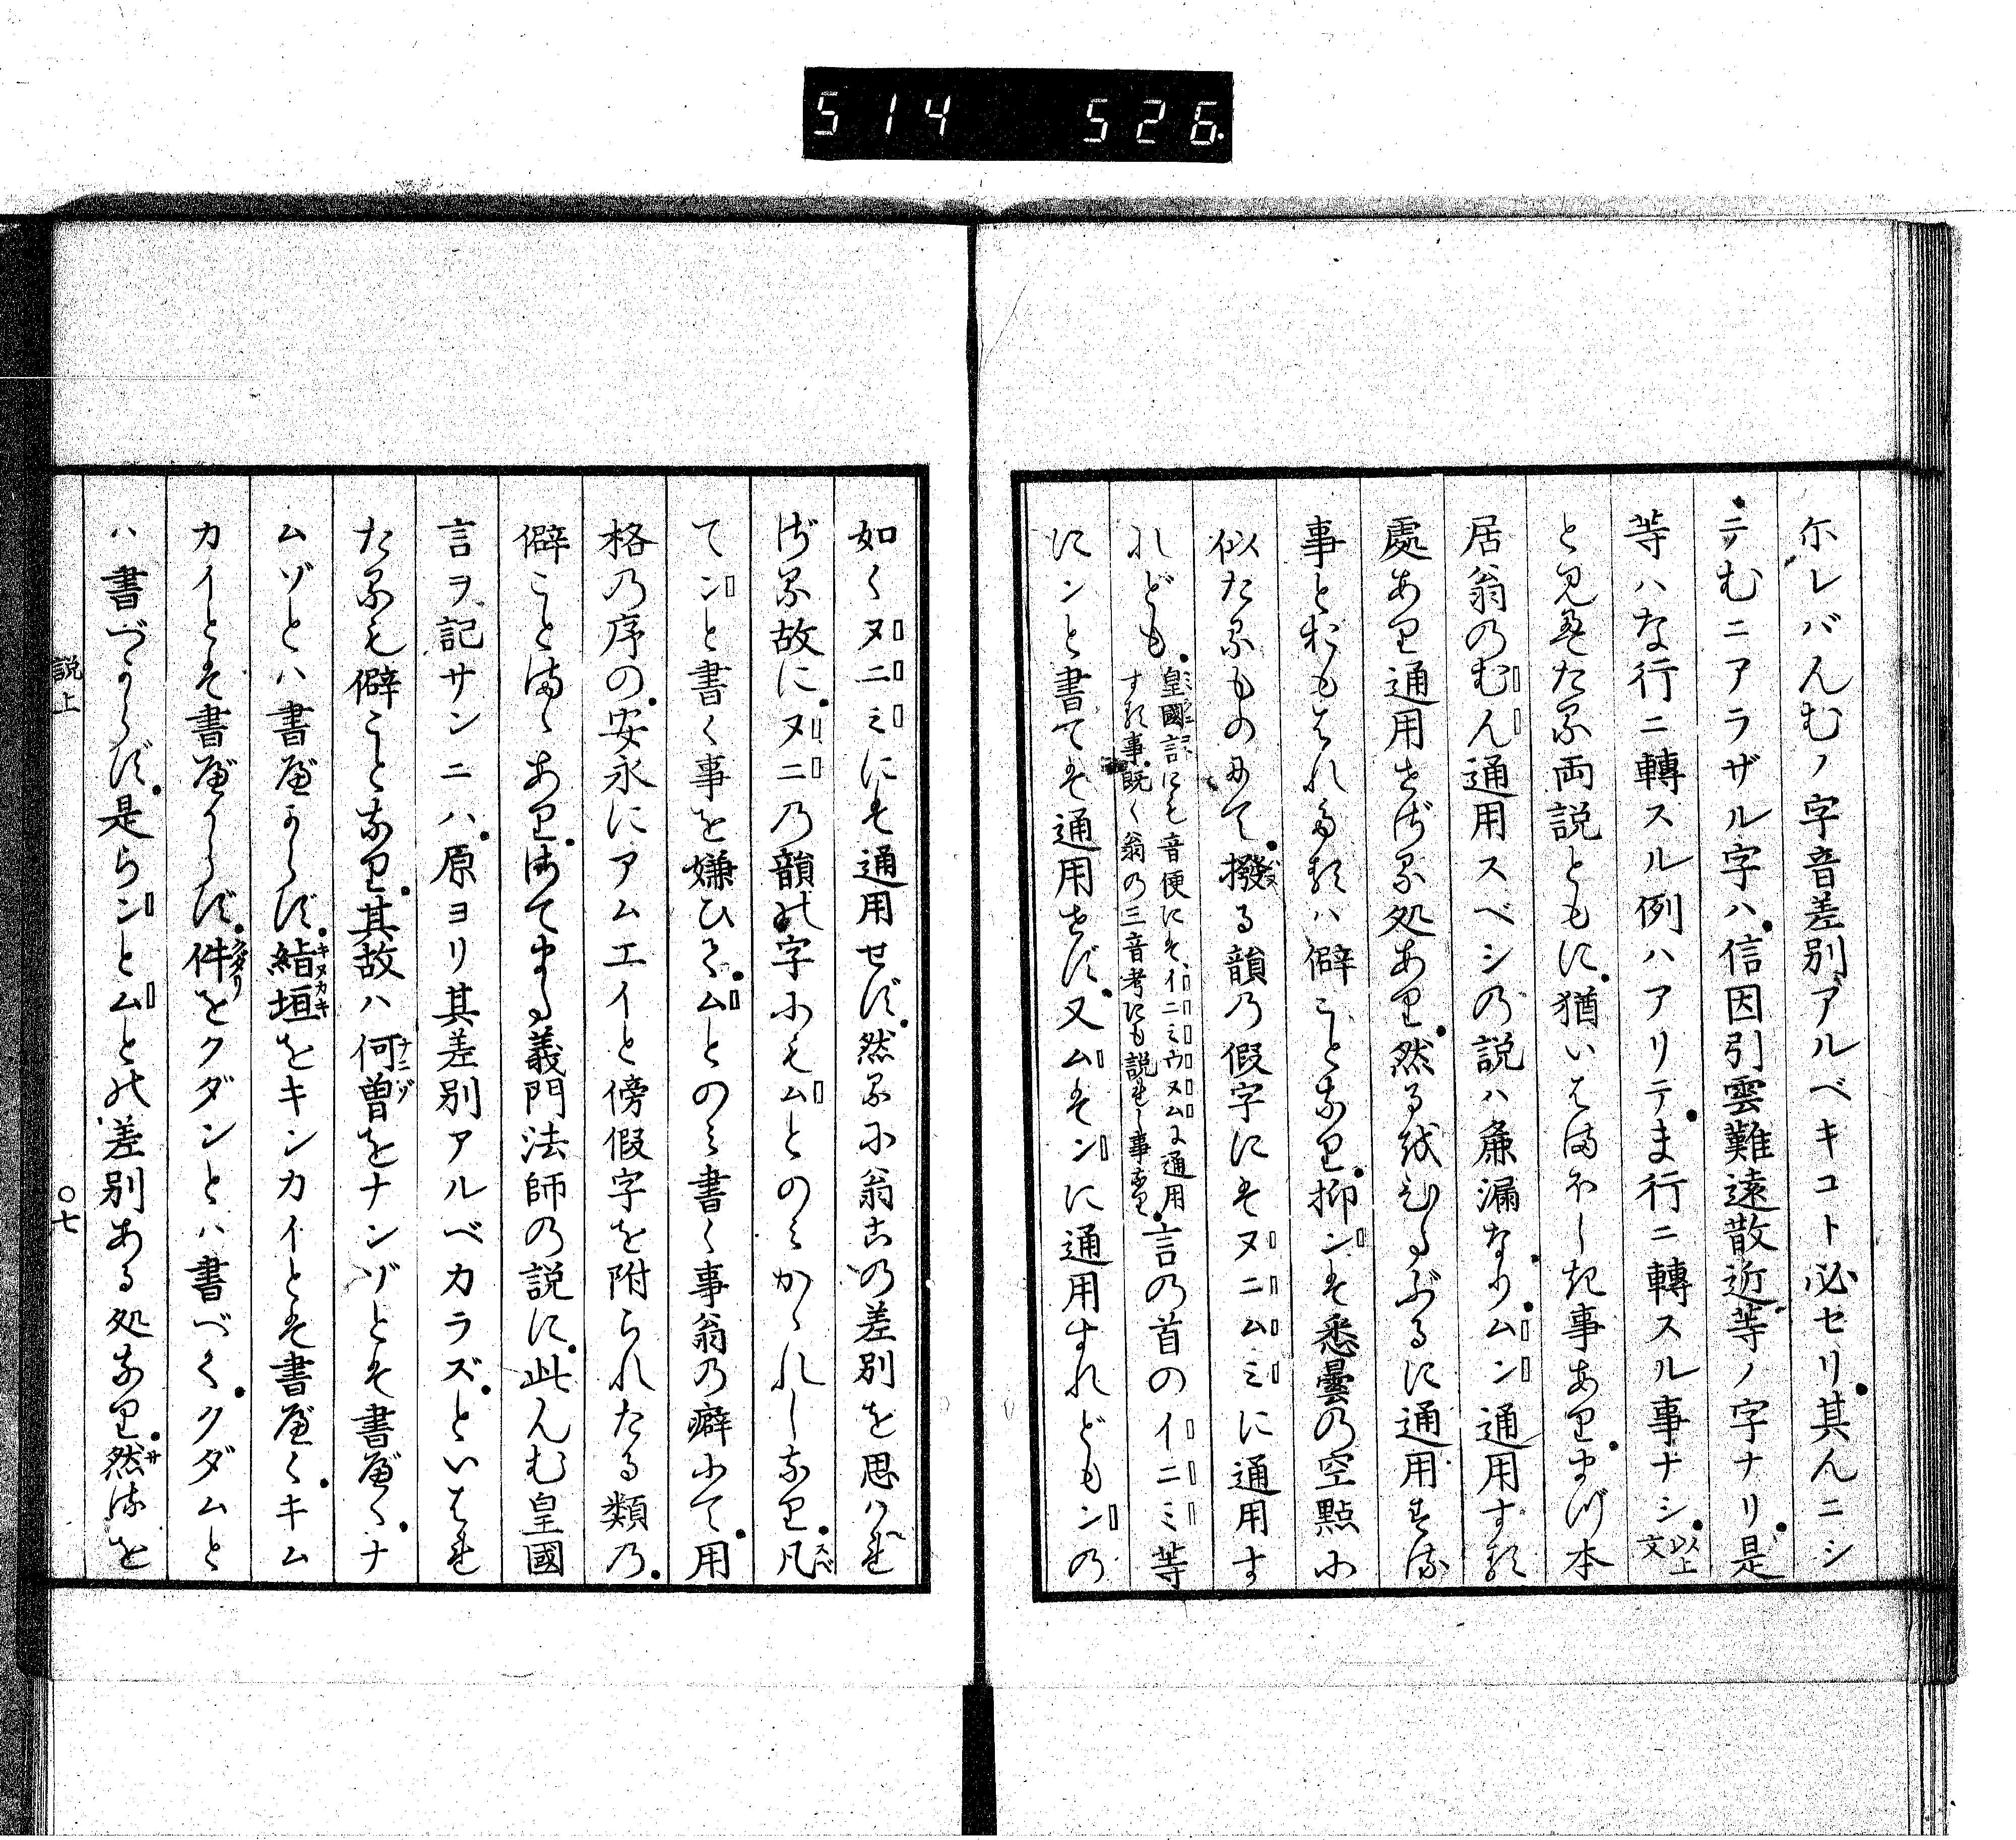 514 526.
尓レバんむノ字音差別アルベキコト必セリ其んニシ
テむニアラザル字ハ信因引雲難遠散近等ノ字ナリ是
等ハな行ニ轉スル例ハアリテま行ニ轉スル事ナシ以上文
と見えたる両説ともに猶いはまほしき事ありまづ本
居翁のむん通用スベシの説ハ麁漏なりムン通用する
處あり通用せざる処あり然るを
事とおもはれたるハ僻ことなり抑ンは悉曇の空點に
似たるものにて撥る韻の假字にはヌニムミに通用す
れども皇國言にも音便にはイニミウヌムに通用する事既く翁の三音考にも説れし事なり言の首のイニミ等
にンと書ては通用せず又ムはンに通用すれどもンの
如くヌニミには通用せず然るに翁この差別を思はれ
ざる故にヌニの韻の字にもムとのみかゝれしなり凡
てンと書く事を嫌ひてムとのみ書く事翁の癖にて用
格の序の安永にアムエイと傍假字を附られたる類の
僻ことまゝありさてまた義門法師の説に此んむ皇國
言ヲ記サンニハ原ヨリ其差別アルベカラズといはれ
たるも僻ことなり其故ハ何曽をナンゾとは書べくナ
ムゾとハ書べからず緒垣をキンカイとは書べくキム
カイとは書べからず件をクダンとハ書べくクダムと
ハ書べからず是らンとムとの差別ある処なり然るを
説上 〇七